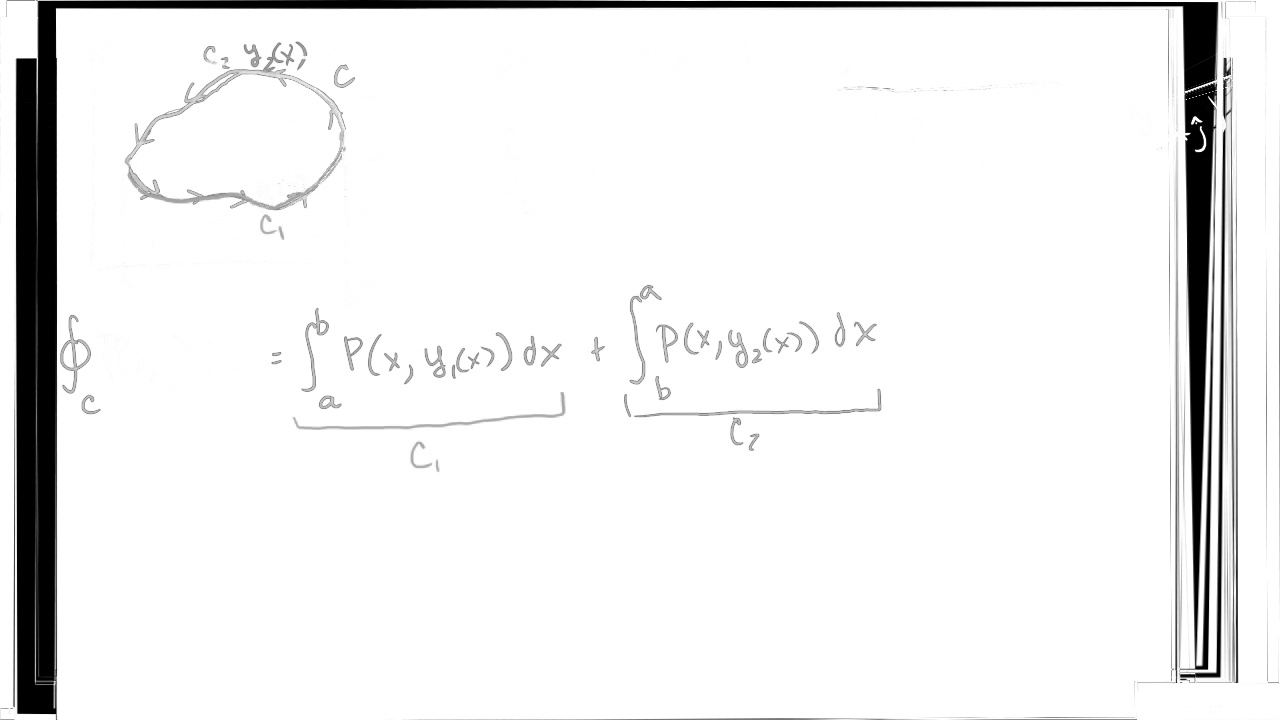 C₂ y₂(x)
C
C₁
ĵ
∮_C = ∫_a^b P(x, y₁(x)) dx + ∫_b^a P(x, y₂(x)) dx
C₁ C₂